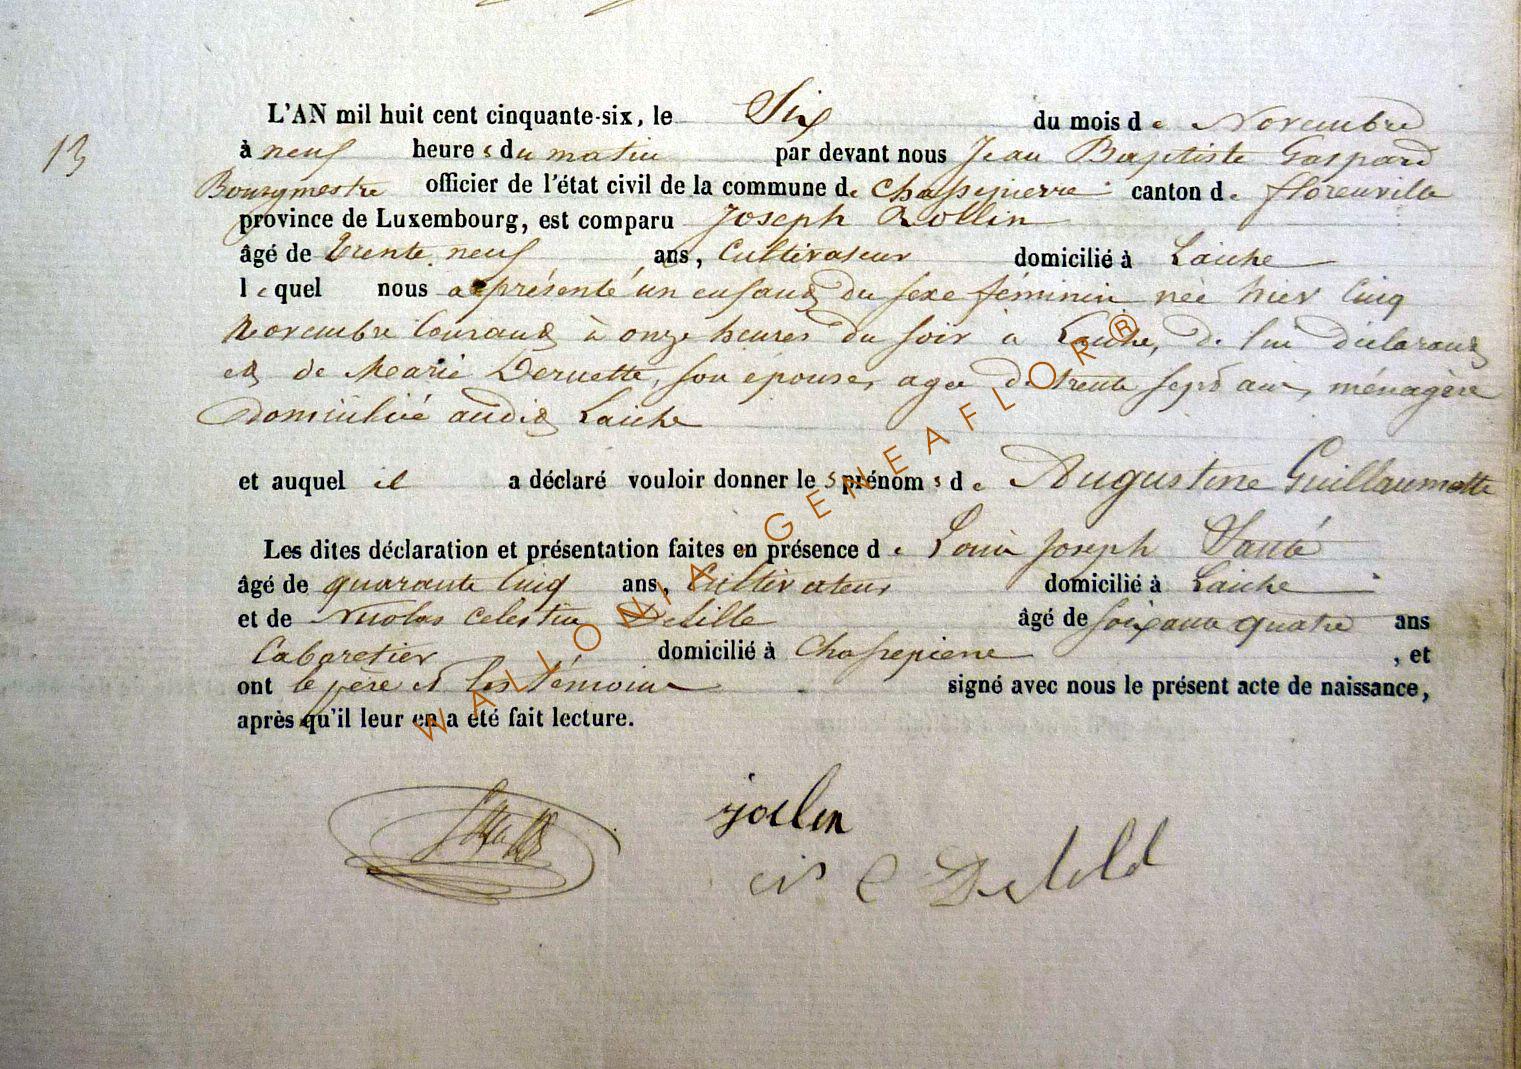 L'AN mil huit cent cinquante-six, le Six du mois de Novembre
13
à neuf heures du matin par devant nous Jean Baptiste Gaspard
Bourgmestre officier de l'état civil de la commune de Chassepierre canton de florenville
province de Luxembourg, est comparu Joseph Rollin
âgé de trente neuf ans, Cultivateur domicilié à Laiche
lequel nous a présenté un enfant du sexe féminin née hier Cinq
Novembre Courant à onze heures du soir à Laiche, de lui déclarant
et de Marie Deruette, son épouse, agée de trente sept ans, ménagère
Domiciliée audit Laiche
et auquel il a déclaré vouloir donner les prénoms de Augustine Guillaumette
Les dites déclaration et présentation faites en présence de Louis Joseph
âgé de quarante Cinq ans, Cultivateur domicilié à Laiche
et de Nicolas Celestin Delille âgé de soixante quatre ans
Cabaretier domicilié à Chassepierre, et
ont le père et les témoins signé avec nous le présent acte de naissance,
après qu'il leur en a été fait lecture.
WALLONIA-GENEAFLOR®